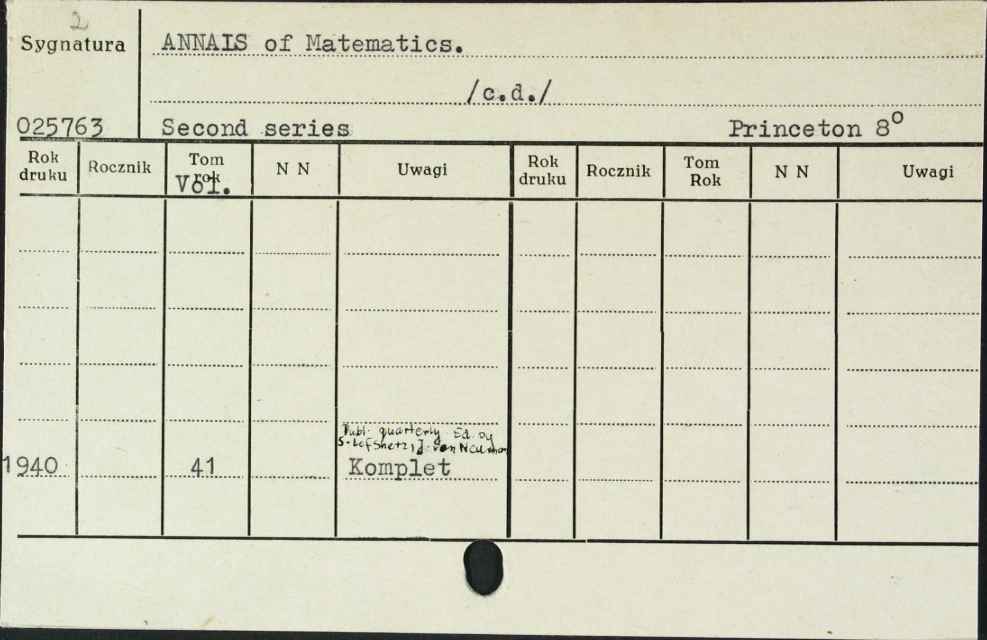 2
Sygnatura
ANNAIS of Matematics.
/c.d./
025763
Second series
Princeton 8°
Rok druku
Rocznik
Tom rok
Vol.
N N
Uwagi
Rok druku
Rocznik
Tom Rok
N N
Uwagi
Publ. quarterly Ed. by
S. Lefshetz, J. von Neuman
1940
41
Komplet